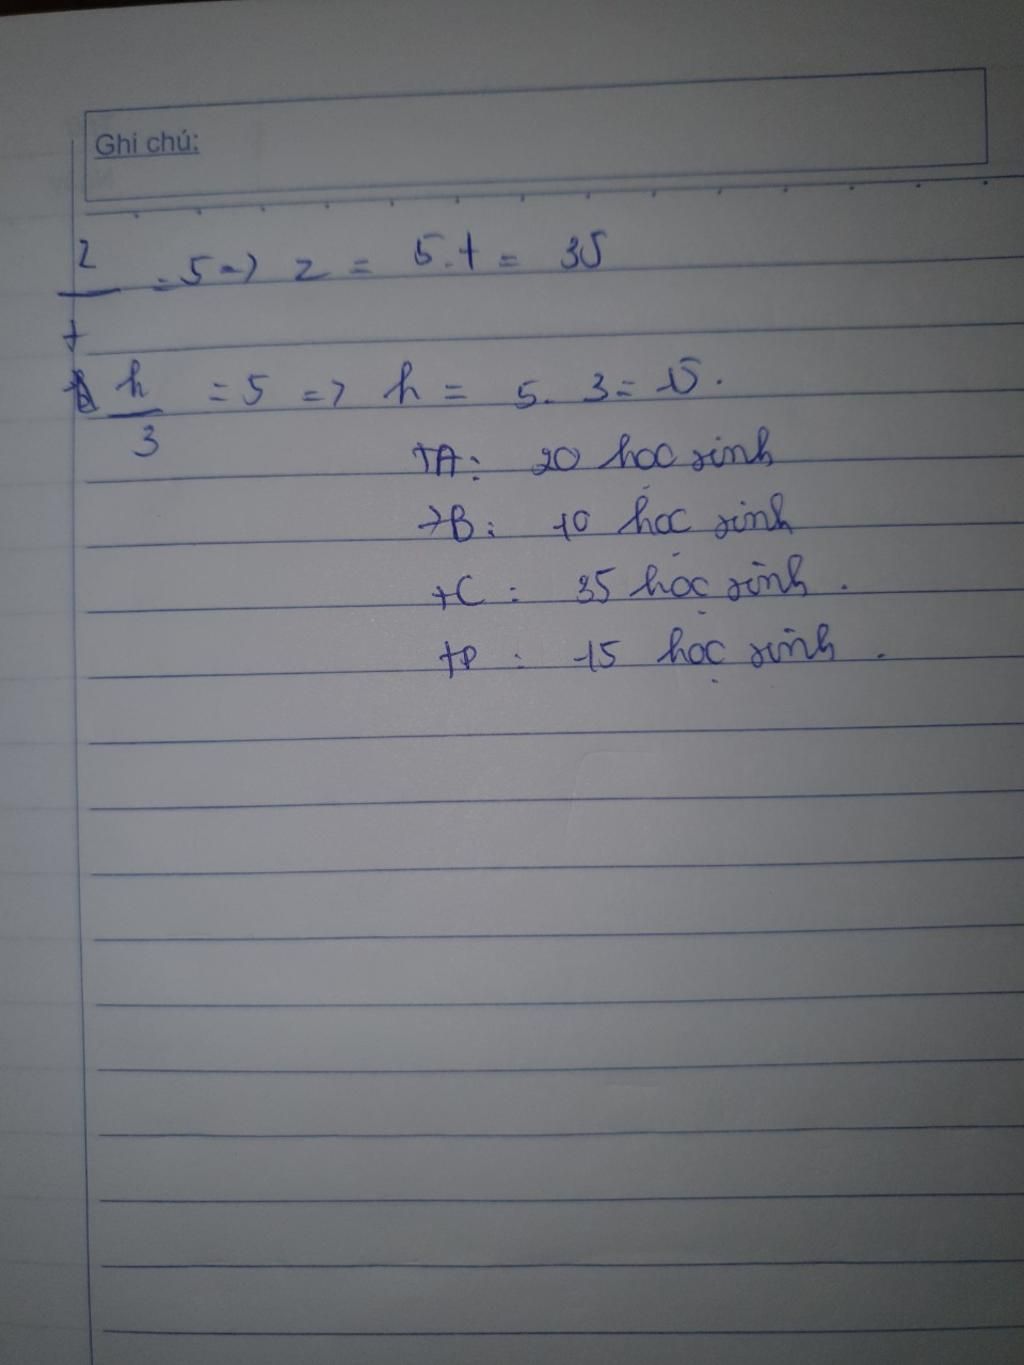 Ghi chú:
z/7 = 5 => z = 5.7 = 35
h/3 = 5 => h = 5. 3 = 15.
+A: 20 học sinh
+B: 10 học sinh
+C: 35 học sinh.
+D: 15 học sinh.